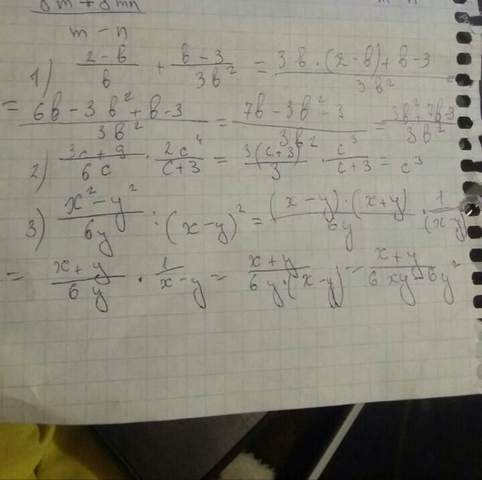 8m + 8mn
m - n
1) (2-b)/b + (b-3)/3b² = (3b·(2-b)+b-3)/3b² =
= (6b-3b²+b-3)/3b² = (7b-3b²-3)/3b² = (3b²+7b-3)/3b²
2) (3c+9)/6c · 2c⁴/(c+3) = 3(c+3)/3 · c³/(c+3) = c³
3) (x²-y²)/6y : (x-y)² = (x-y)·(x+y)/6y · 1/(x-y)
= (x+y)/6y · 1/(x-y) = (x+y)/6y·(x-y) = (x+y)/6xy-6y²